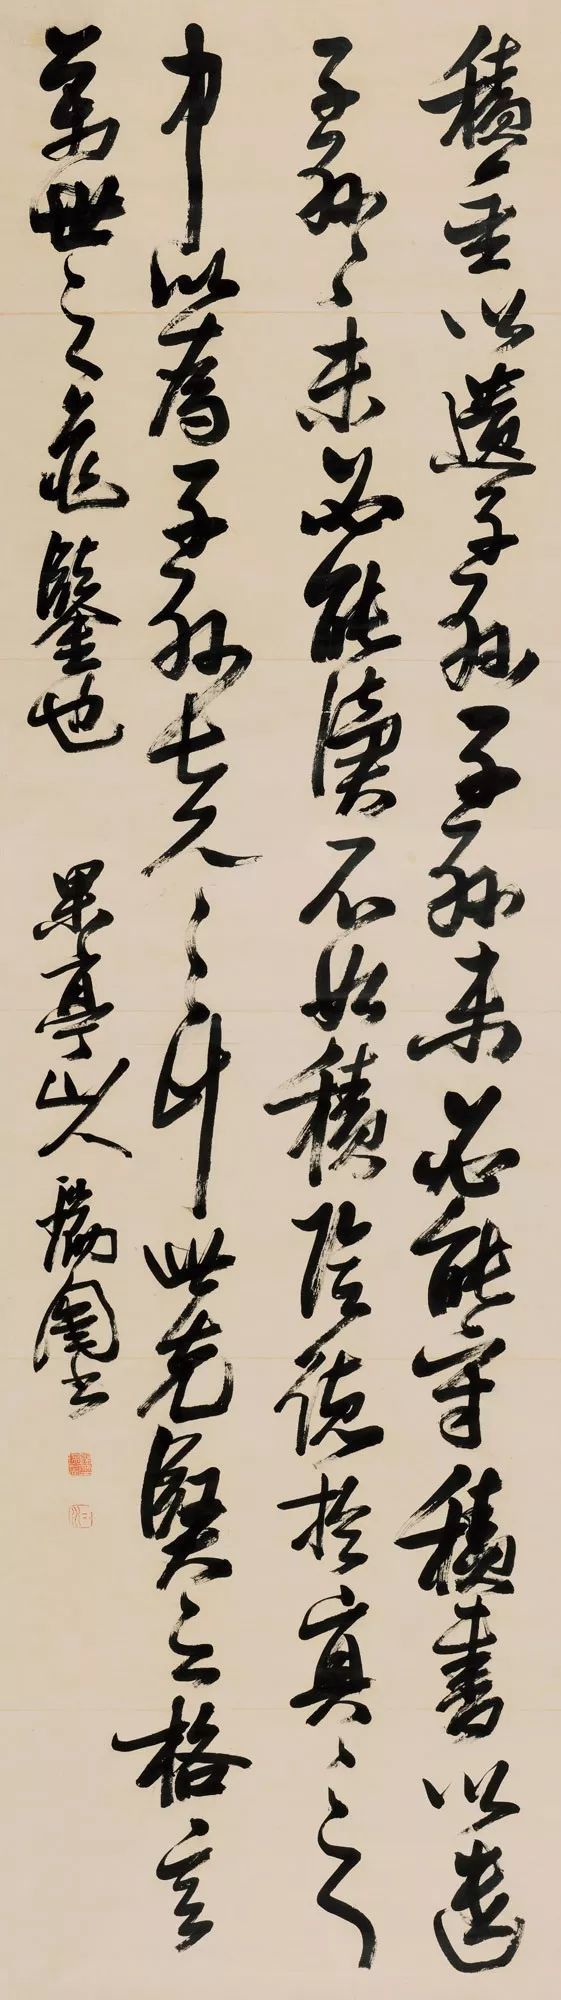 積金以遺子孫子孫未必能守積書以遺
子孫〻未必能讀不如積陰德於冥〻之
中以為子孫長久之計此先賢之格言
萬世之龜鑒也
果亭山人勵